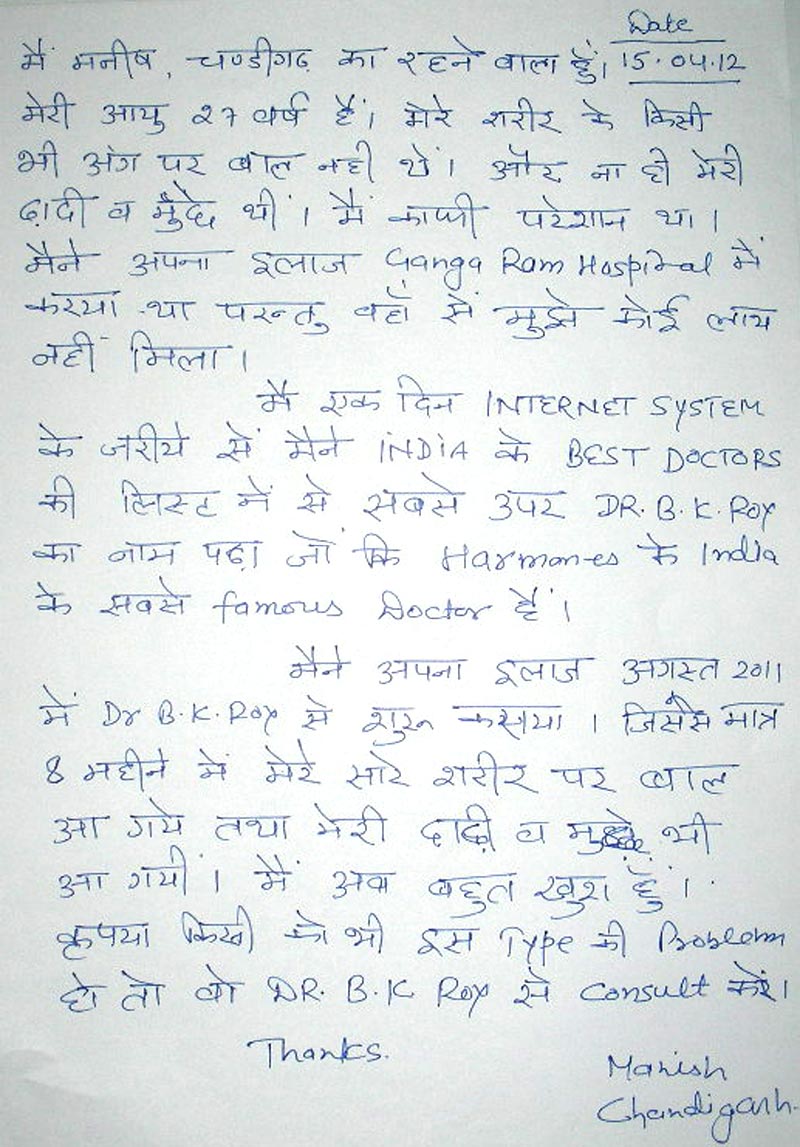 Date
मैं मनीष, चण्डीगढ़ का रहने वाला हूँ। 15.04.12
मेरी आयु 27 वर्ष हैं। मेरे शरीर के किसी
भी अंग पर बाल नही थें। और ना ही मेरी
दाढ़ी व मुँछे थीं। मैं काफी परेशान था।
मैने अपना इलाज Ganga Ram Hospital में
करया था परन्तु वहाँ सें मुझे कोई लाभ
नहीं मिला।
मै एक दिन INTERNET SYSTEM
के जरीये सें मैने INDIA के BEST DOCTORS
की लिस्ट में से सबसे उपर DR. B. K. Roy
का नाम पढ़ा जों कि Harmones के India
के सबसे famous Doctor हैं।
मैने अपना इलाज अगस्त 2011
में Dr B.K. Roy से शुरू करवाया। जिससे मात्र
8 महीने में मेरे सारे शरीर पर बाल
आ गये तथा मेरी दाढ़ी व भी
आ गयीं। मैं अब बहुत खुश हूँ।
कृपया किसी को भी इस Type की Problem
हो तो वो DR. B.K Roy से Consult करें।
Thanks.
Manish
Chandigarh.